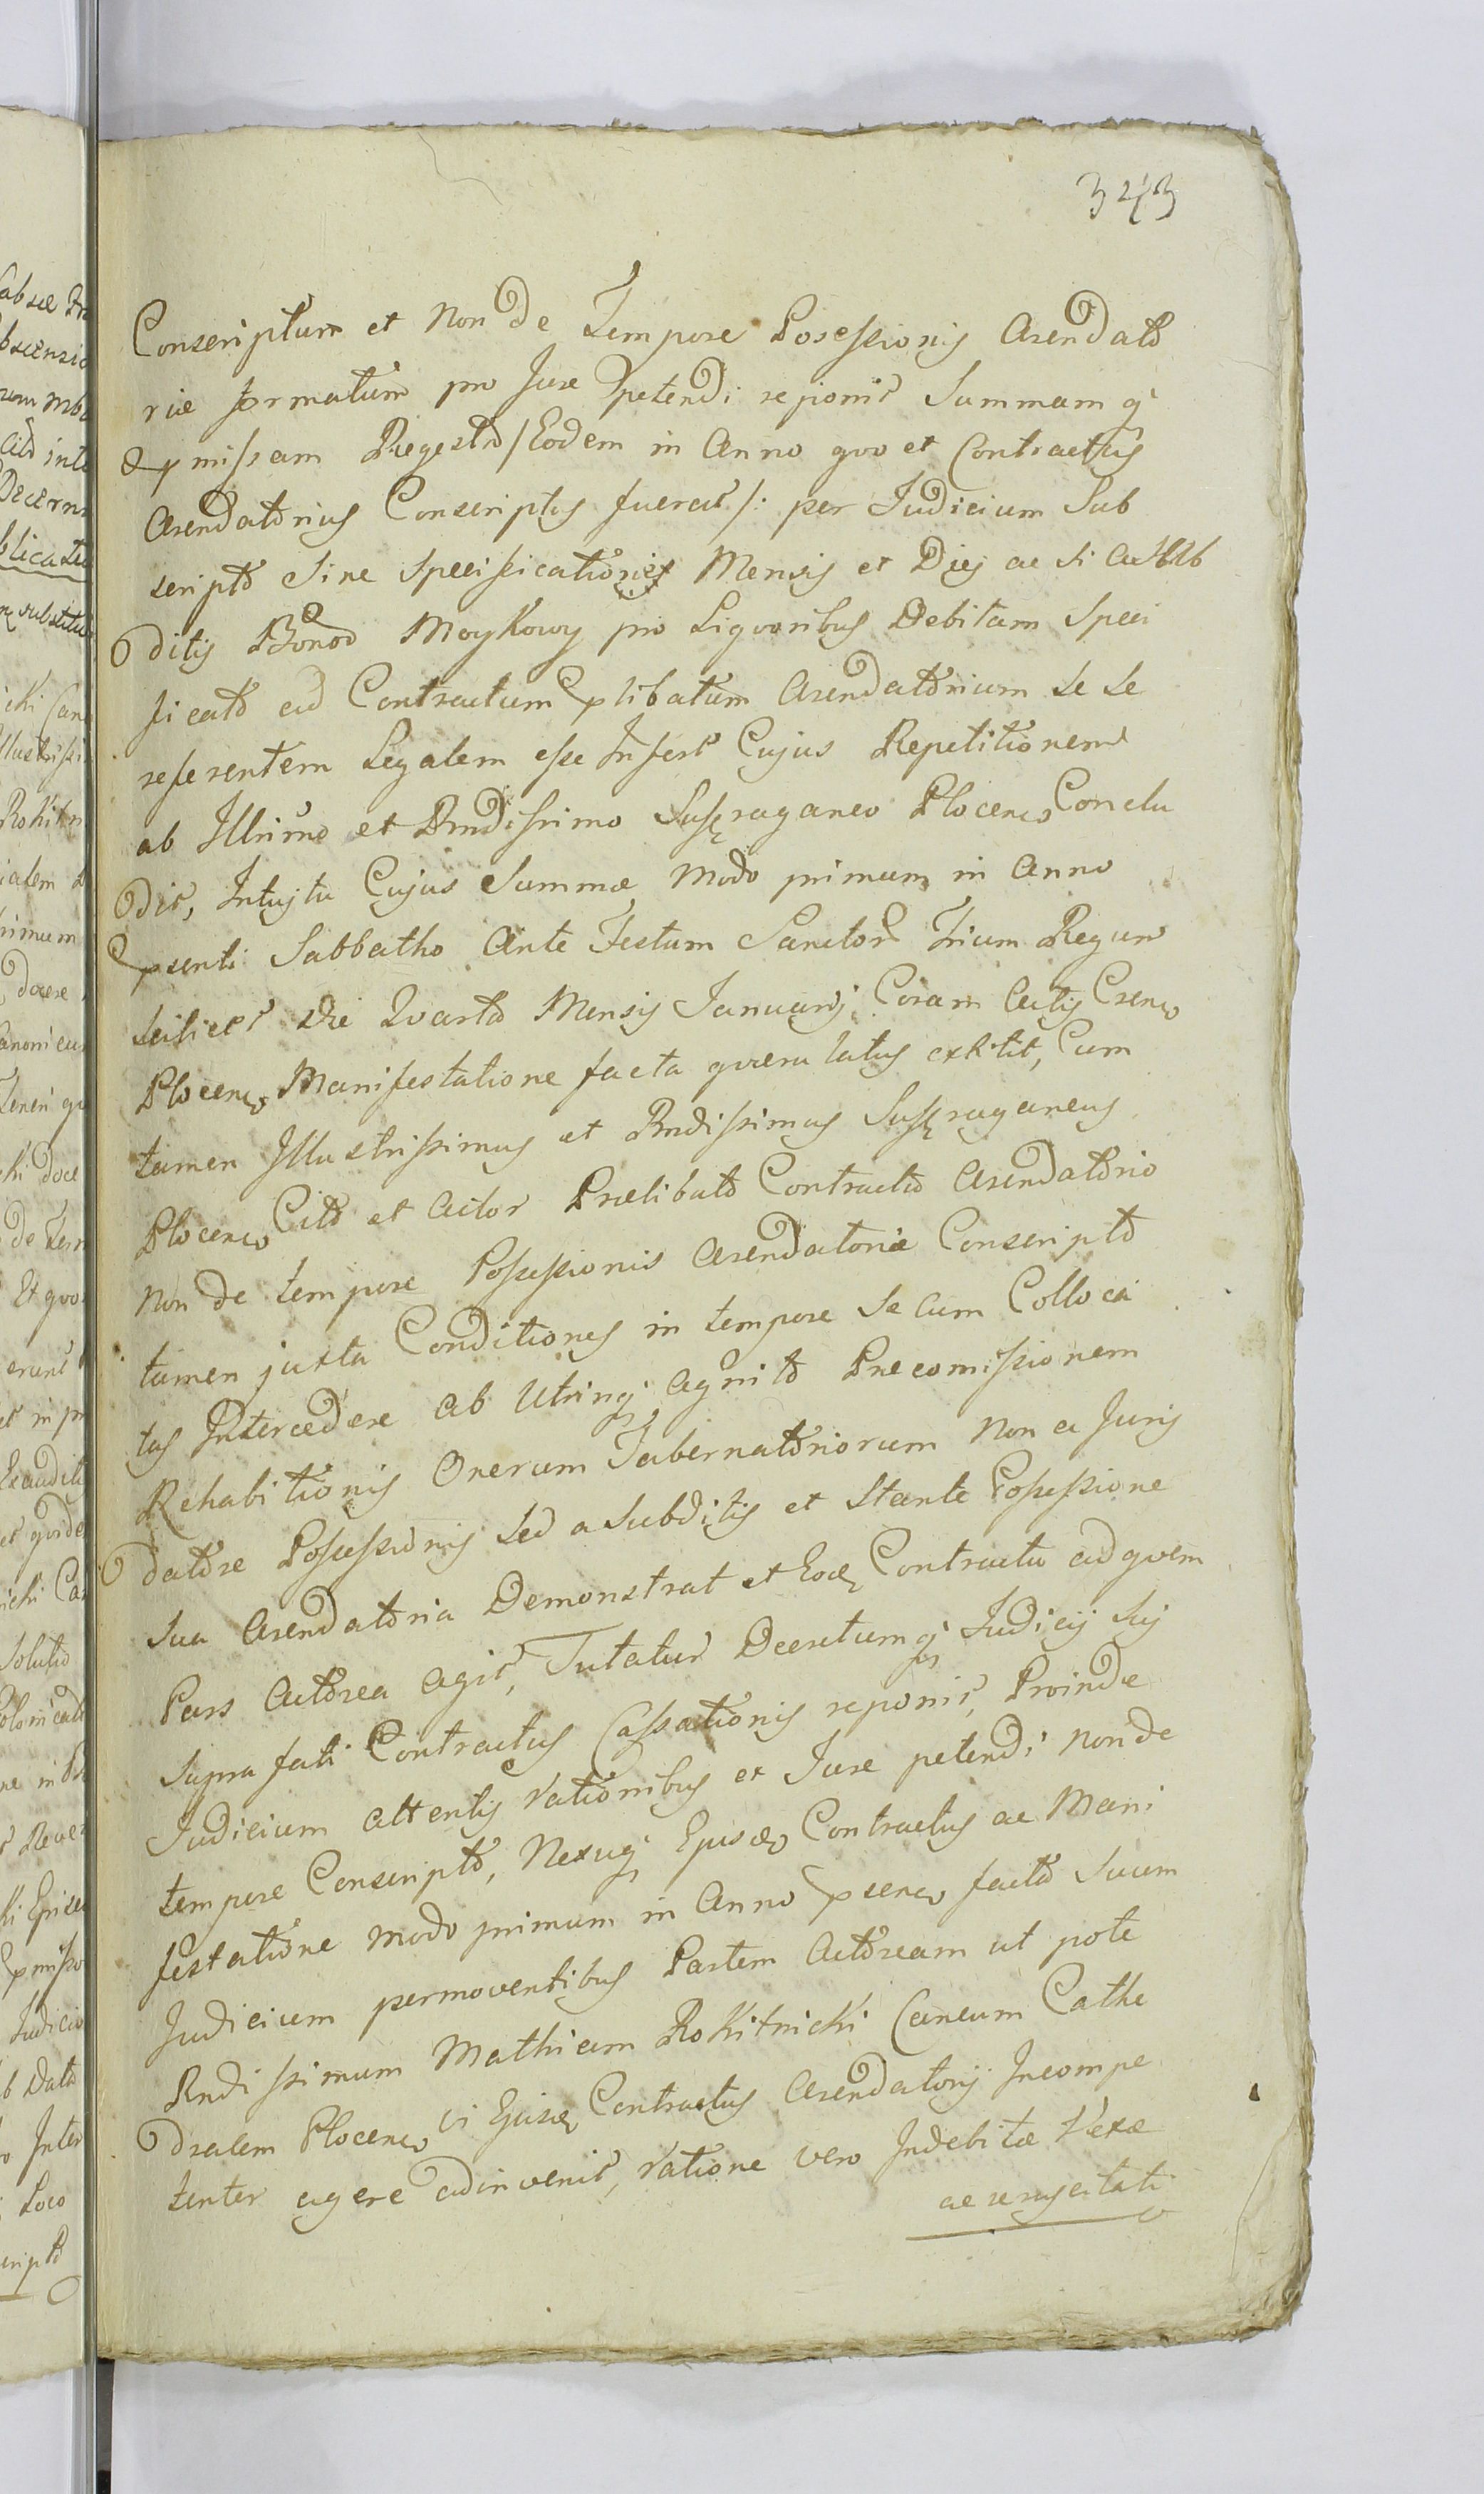 343
Conscriptum et non de Tempore Possessionis Arendato
riæ formatum pro Jure petendi reponit Summamq
pmissam Regestro /Eodem in Anno quo et Contractus
Arendatorius Conscriptus fuerat /: per Judicium Sub
scripto Sine Specificationis Mensis et Diei ac si a Sub
ditis Bonor Moykowy pro Liquoribus Debitam Speci
ficato ad Contractum plibatum Arendatorium Se Se
referentem Legalem esse Infert Cujus Repetitionem
ab Illrimo et Rndissimo Suffraganeo Plocen Conclu
dit, Intuitu Cujus Summæ modo primum in Anno
psenti Sabbatho Ante Festum Sanctor Trium Regum
scilicet Die Quarta Mensis Januarij Coram Actis Cren
Plocen Manifestatione facta querulatus extitit, Cum
tamen Illustrissimus et Rndissimus Suffraganeus
Plocen Cito et Actor Prælibato Contractu Arendatorio
non de tempore Possessionis Arendatoriæ Conscripto
tamen juxta Conditiones in tempore Secum Colloca
tas Intercedere ab Utrinq agnito Precomissionem
Rehabitionis Onerum Tabernatoriorum non a Juris
datore Possessionis Sed a Subditis et Stante Possessione
Sua Arendatoria Demonstrat et Eod Contractu ad quem
Pars Actorea agit, Tutatur Decretumq Judicij Sui
Supra fati Contractus Cassationis reponit, Proinde
Judicium attentis rationibus et Jure petendi non de
tempore Conscripto, Nexuq Ejusd Contractus ac Mani
festatione modo primum in Anno psen facto Suum
Judicium permoventibus Partem Actoream ut pote
Rndissimum Mathiam Rokitnicki Caneum Cathe
dralem Plocen vi Ejusd Contractus Arendatorij Incompe
tenter agere adinvenit, ratione vero Indebitæ Vexæ